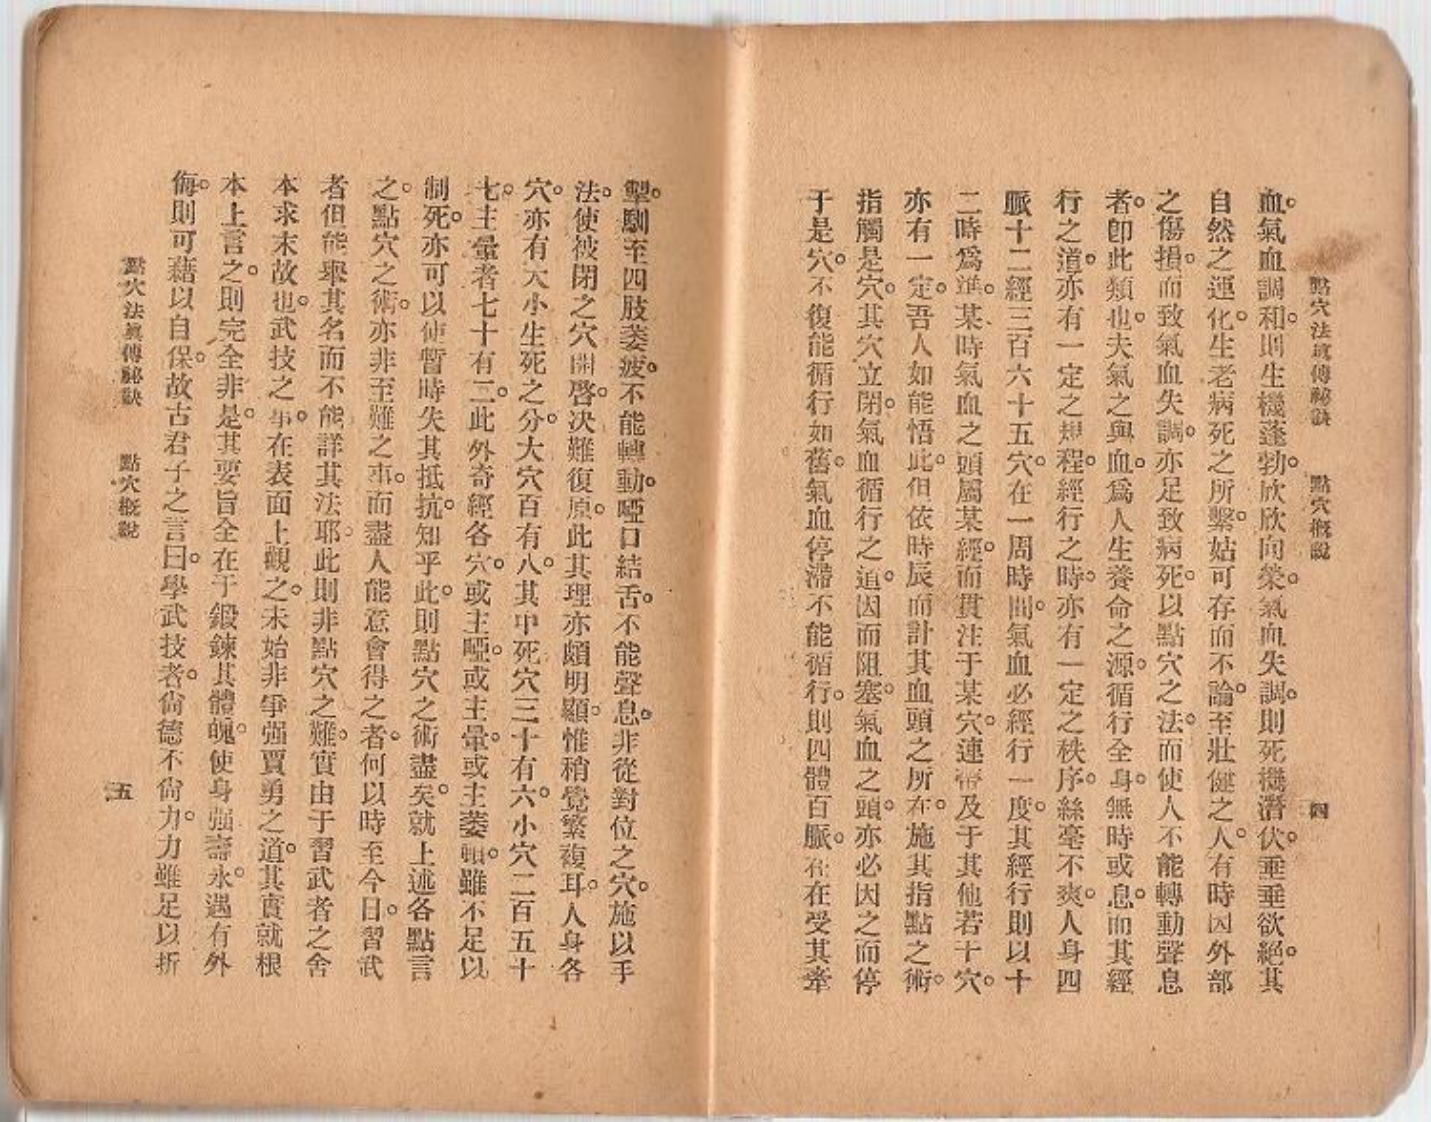 點穴法眞傳祕訣　點穴概說　四
血。氣血調和。則生機蓬勃。欣欣向榮。氣血失調。則死機潛伏。垂垂欲絕。其
自然之運化。生老病死之所繫。姑可存而不論。至壯健之人。有時因外部
之傷損。而致氣血失調。亦足致病死。以點穴之法。而使人不能轉動聲息
者。卽此類也。夫氣之與血。爲人生養命之源。循行全身。無時或息。而其經
行之道。亦有一定之規程。經行之時。亦有一定之秩序。絲毫不爽。人身四
脈十二經三百六十五穴。在一周時間。氣血必經行一度。其經行則以十
二時爲準。某時氣血之頭屬某經。而貫注于某穴。連帶及于其他若干穴。
亦有一定。吾人如能悟此。但依時辰而計其血頭之所在。施其指點之術。
指觸是穴。其穴立閉。氣血循行之道。因而阻塞。氣血之頭。亦必因之而停
于是穴。不復能循行如舊。氣血停滯不能循行。則四體百脈。在在受其牽
掣。馴至四肢萎疲。不能轉動。啞口結舌。不能聲息。非從對位之穴。施以手
法。使被閉之穴開啓。決難復原。此其理亦頗明顯。惟稍覺繁複耳。人身各
穴。亦有大小生死之分。大穴百有八。其中死穴三十有六。小穴二百五十
七。主暈者七十有二。此外奇經各穴。或主啞。或主暈。或主萎頓。雖不足以
制死。亦可以使暫時失其抵抗。知乎此。則點穴之術盡矣。就上述各點言
之。點穴之術。亦非至難之事。而盡人能意會得之者。何以時至今日。習武
者但能舉其名而不能詳其法耶。此則非點穴之難。實由于習武者之舍
本求末故也。武技之事。在表面上觀之。未始非爭强賈勇之道。其實就根
本上言之。則完全非是。其要旨全在于鍛鍊其體魄。使身强壽永。遇有外
侮。則可藉以自保。故古君子之言曰。學武技者。尙德不尙力。力雖足以折
點穴法眞傳祕訣　點穴概說　五